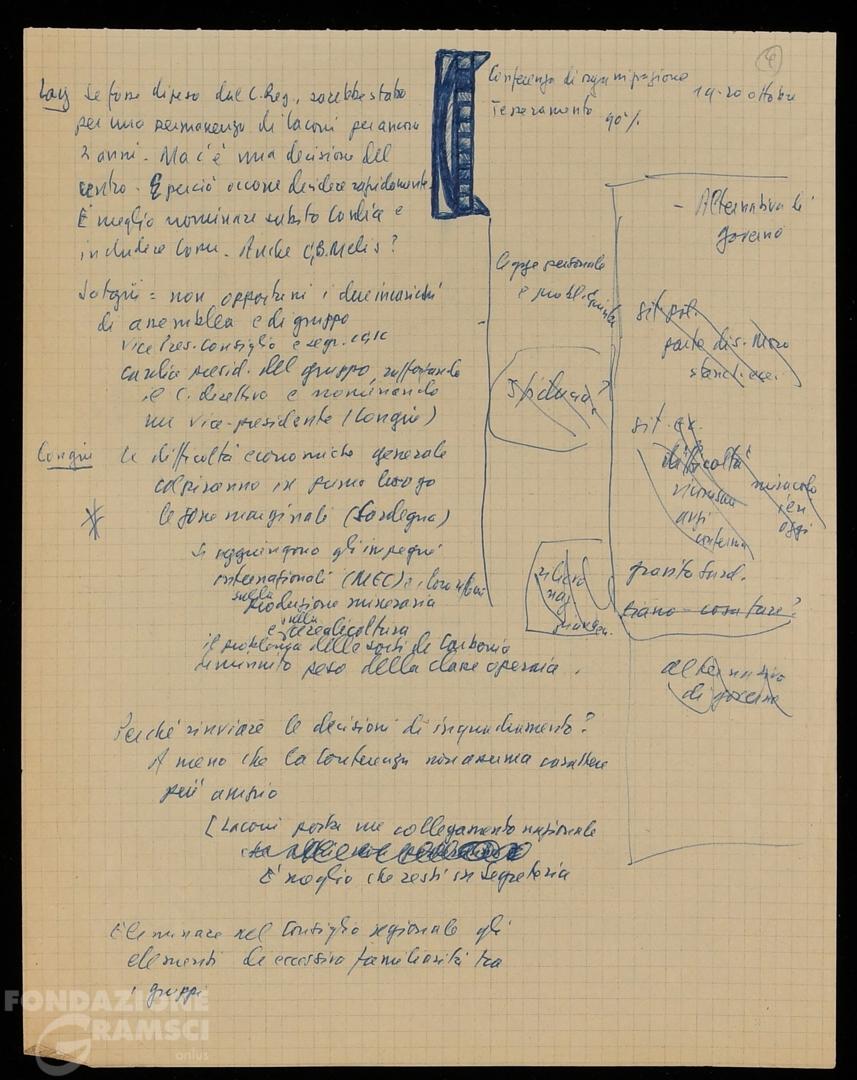 4
Conferenza di organizzazione
19-20 ottobre
Tesseramento 90%
Lay Se fosse dipeso dal C. Reg., sarebbe stato
per una permanenza di Laconi per ancora
2 anni. Ma c'è una decisione del
centro. E perciò occorre decidere rapidamente.
È meglio nominare subito Cardia e
includere Congiu. Anche G.B. Melis?
Sotgiu = non opportuni i due incarichi
di assemblea e di gruppo
Vice Pres. Consiglio e segr.
Cardia presid. del gruppo rafforzando
il C. direttivo e nominando
un vice-presidente (Congiu)
Congiu Le difficoltà economiche generali
colpiranno in primo luogo
le zone marginali (Sardegna)
si aggiungono gli impegni
internazionali (MEC) e i loro riflessi
sulla produzione mineraria
e sulla cerealicoltura
il problema delle sorti di Carbonia
diminuito peso della classe operaia.
Perché rinviare le decisioni di inquadramento?
A meno che la Conferenza non assuma carattere
più ampio
[Laconi porta un collegamento nazionale
È meglio che resti in Segreteria
Eliminare nel Consiglio regionale gli
elementi di eccessiva familiarità tra
i gruppi
legge personale
e probl.
Sfiducia?
- Alternativa di
governo
sit. pol.
parte dis. Moro
sit. ec.
difficoltà
miracolo
ieri
oggi
anzi
conferma
piano - cosa fare?
alternativa
di governo
FONDAZIONE
GRAMSCI
onlus